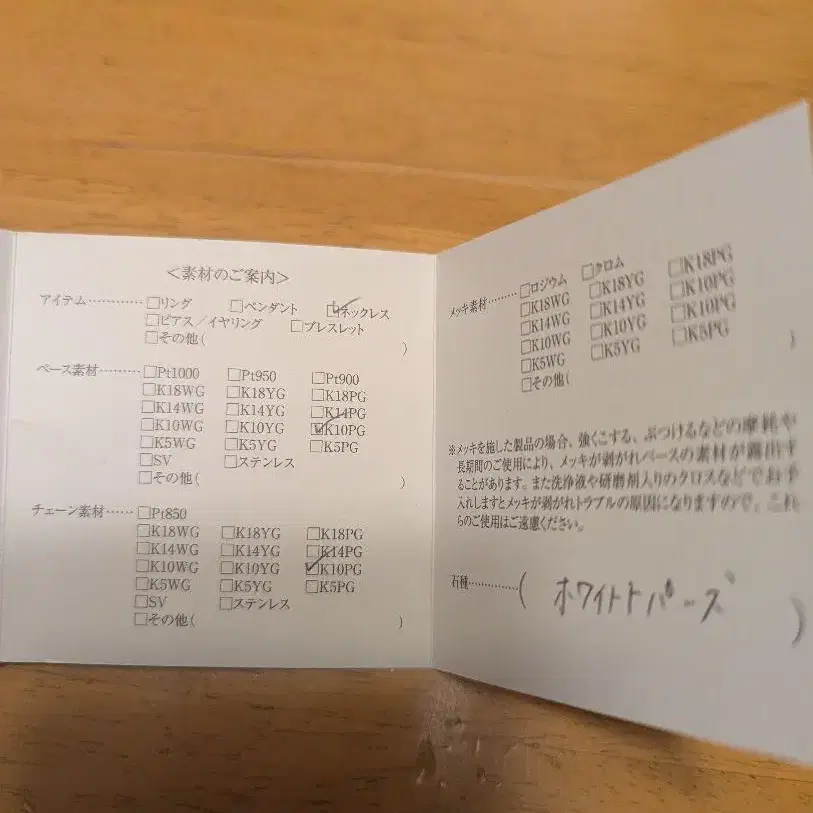 ＜素材のご案内＞
アイテム………… □リング □ペンダント ☑ネックレス
□ピアス／イヤリング □ブレスレット
□その他( )
ベース素材……… □Pt1000 □Pt950 □Pt900
□K18WG □K18YG □K18PG
□K14WG □K14YG □K14PG
□K10WG □K10YG ☑K10PG
□K5WG □K5YG □K5PG
□SV □ステンレス
□その他( )
チェーン素材…… □Pt850
□K18WG □K18YG □K18PG
□K14WG □K14YG □K14PG
□K10WG □K10YG ☑K10PG
□K5WG □K5YG □K5PG
□SV □ステンレス
□その他( )
メッキ素材……… □ロジウム □クロム □K18PG
□K18WG □K18YG □K10PG
□K14WG □K14YG □K10PG
□K10WG □K10YG □K5PG
□K5WG □K5YG
□その他( )
※メッキを施した製品の場合、強くこする、ぶつけるなどの摩耗や
長期間のご使用により、メッキが剥がれベースの素材が露出す
ることがあります。また洗浄液や研磨剤入りのクロスなどでお手
入れしますとメッキが剥がれトラブルの原因になりますので、これ
らのご使用はご遠慮ください。
石種…………( ホワイトトパーズ )